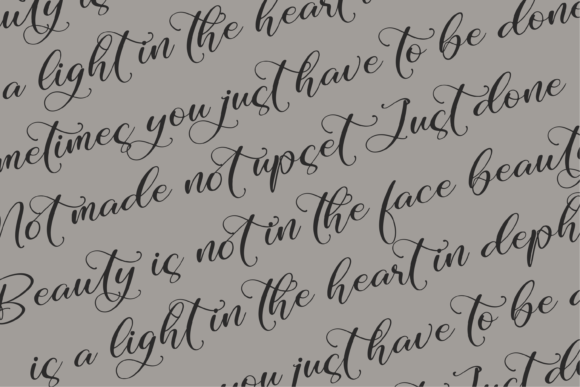 is
a light in the heart
sometimes you just have to be done
Not made not upset Just done
Beauty is not in the face beauty
is a light in the heart in deph
you just have to be
Just